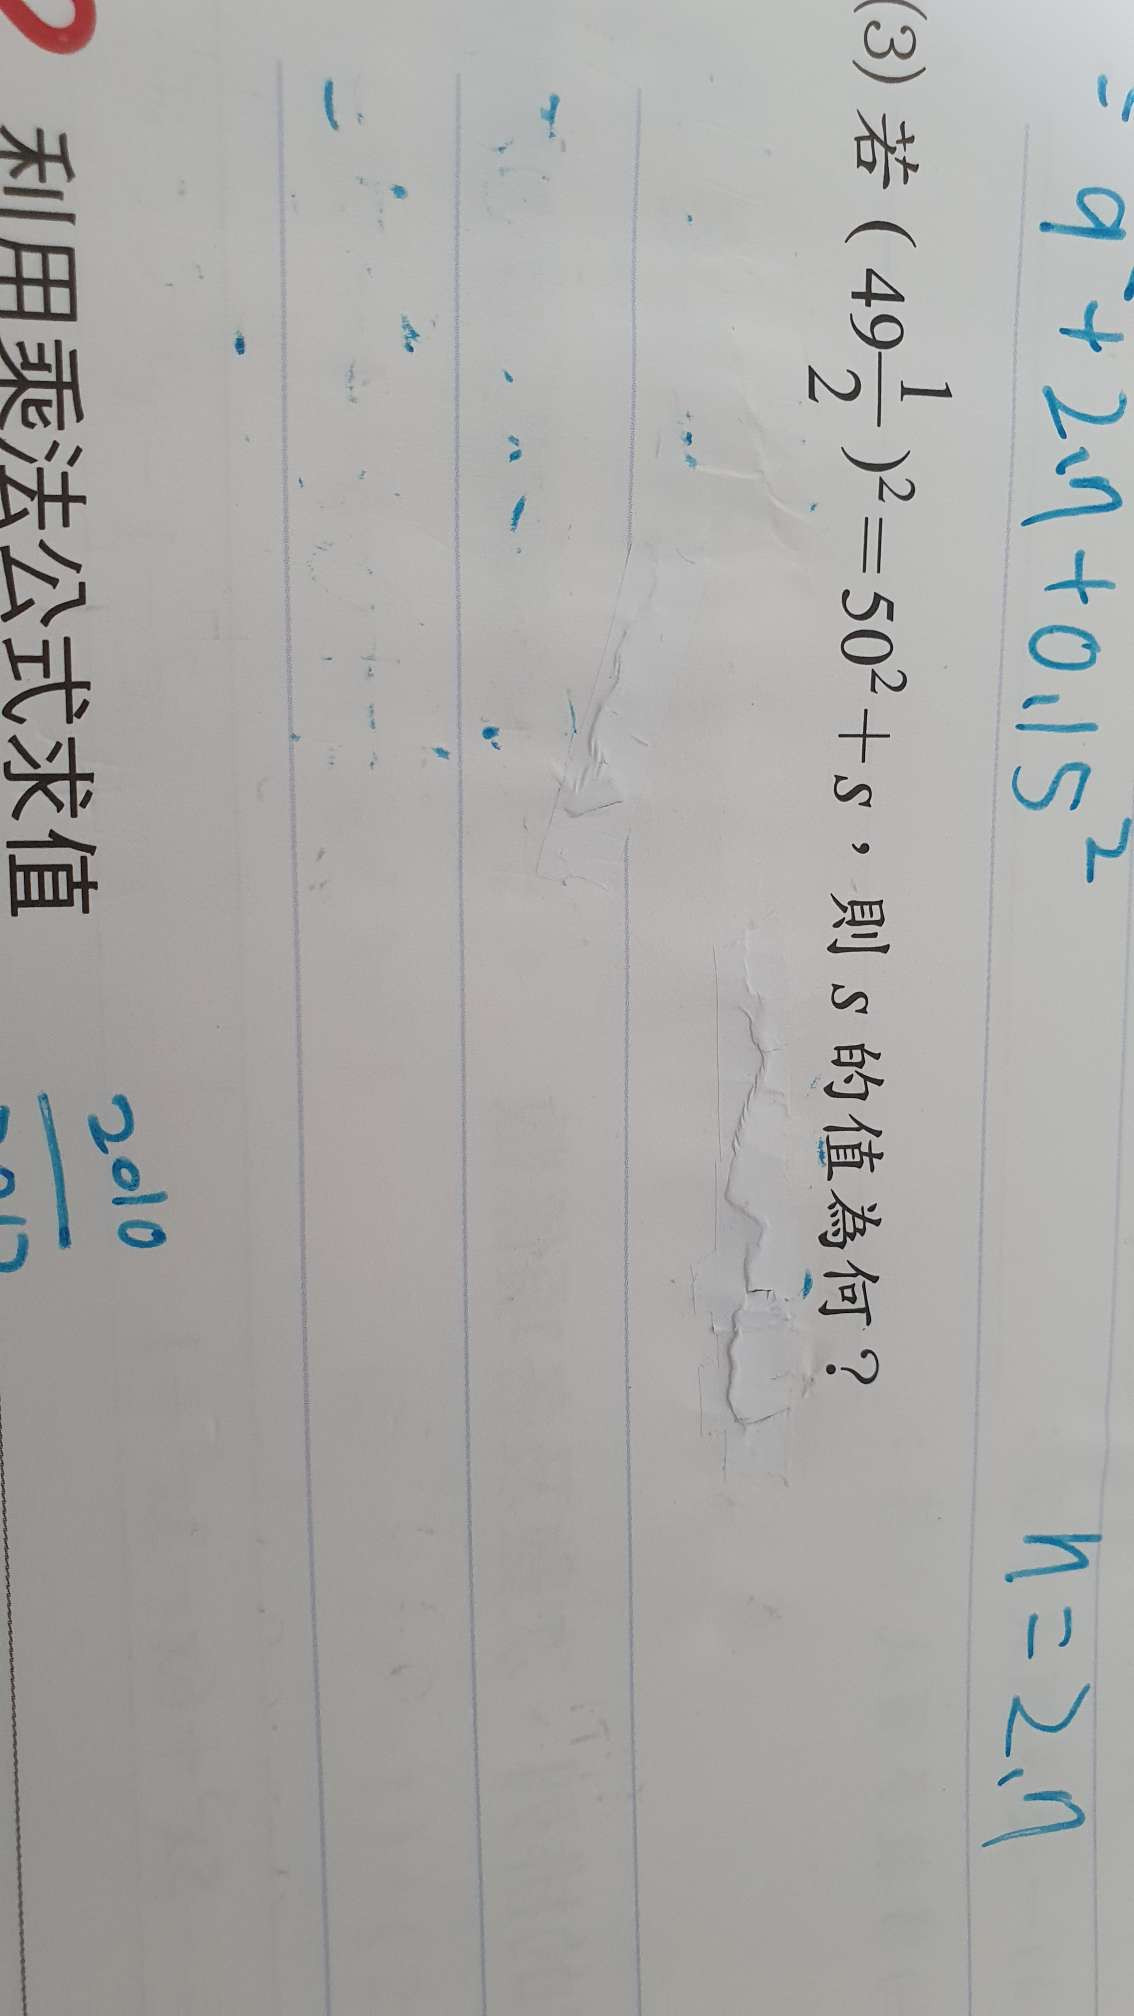 = 9² + 2.7 + 0.15²
n = 2.7
(3) 若 ( 49 1/2 )² = 50² + s，則 s 的值為何？
利用乘法公式求值
2010